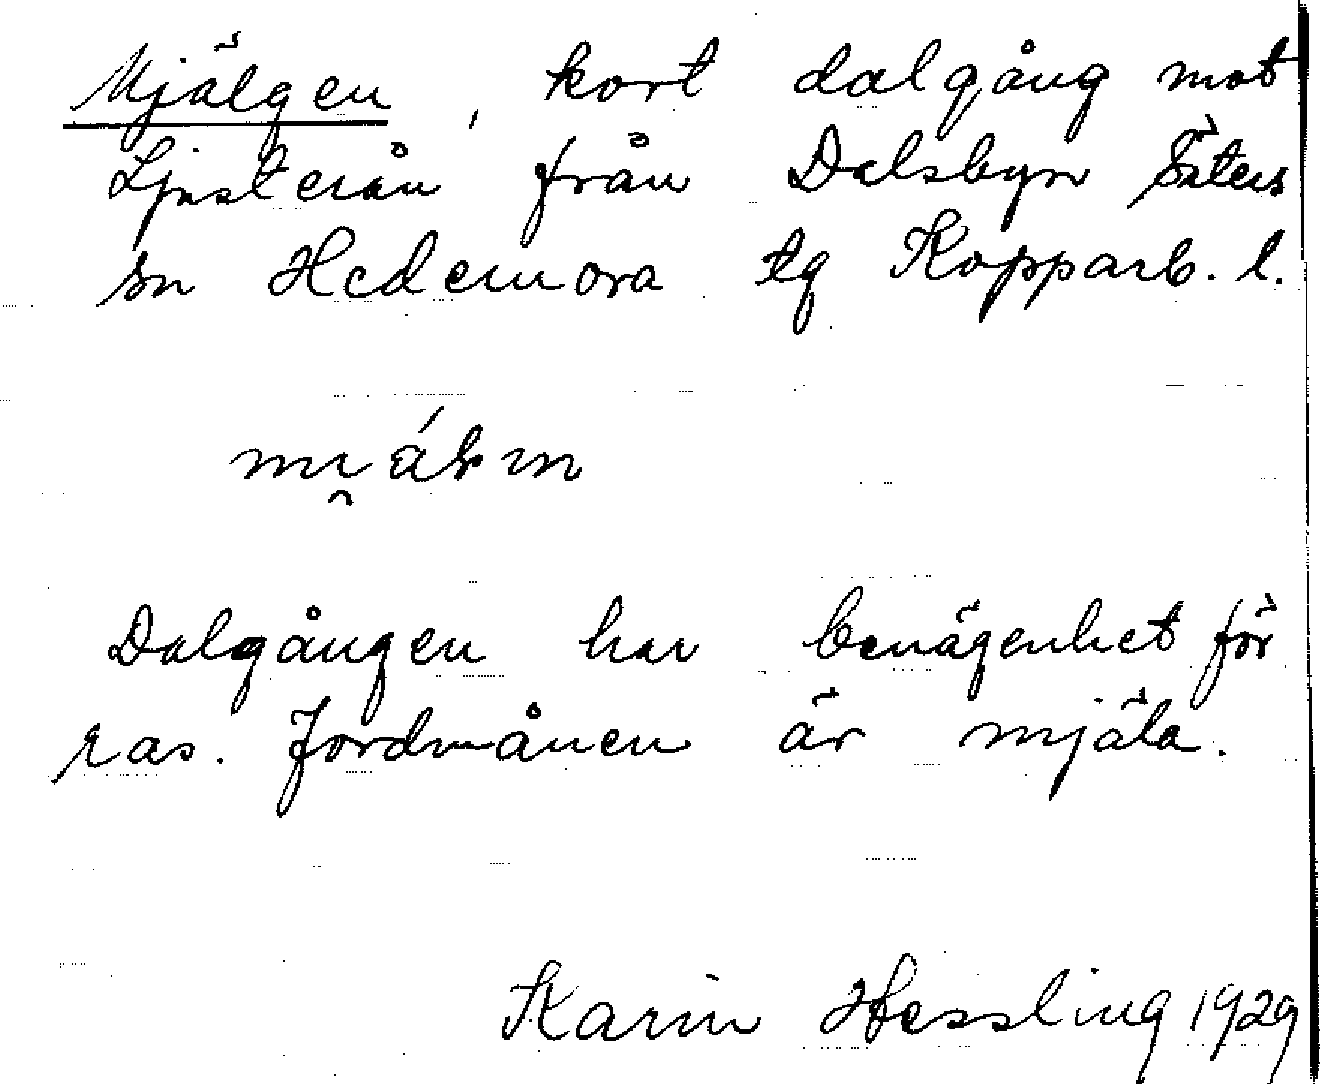 Mjälgen, kort dalgång mot
Ljusterån från Dalsbyn Säters
sn Hedemora tg Kopparb. l.
Dalgången har benägenhet för
ras. Jordmånen är mjäla.
Karin Hessling 1929